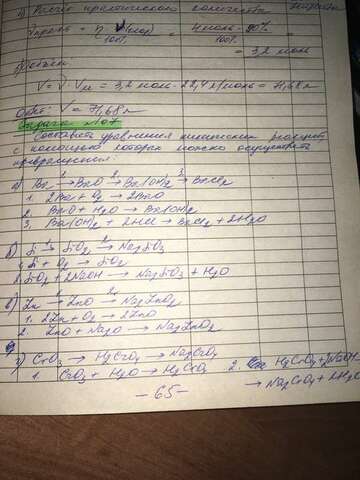 3) Расчёт практического количества
ν практ = η · ν(теор) / 100% = 4 моль · 80% / 100% =
= 3,2 моль
V = ν · Vм = 3,2 моль · 22,4 л/моль = 71,68 л
Ответ: V = 71,68 л
Задача №07
Составить уравнения химических реакций,
с помощью которых можно осуществить
превращения:
а) Ba 1→ BaO 2→ Ba(OH)2 3→ BaCl2
1. 2Ba + O2 → 2BaO
2. BaO + H2O → Ba(OH)2
3. Ba(OH)2 + 2HCl → BaCl2 + 2H2O
б) Si 1→ SiO2 2→ Na2SiO3
1. Si + O2 → SiO2
2. SiO2 + 2NaOH → Na2SiO3 + H2O
в) Zn 1→ ZnO 2→ Na2ZnO2
1. 2Zn + O2 → 2ZnO
2. ZnO + Na2O → Na2ZnO2
г) CrO3 → H2CrO4 → Na2CrO4
1. CrO3 + H2O → H2CrO4 2. H2CrO4 + 2NaOH
→ Na2CrO4 + 2H2O
- 65 -